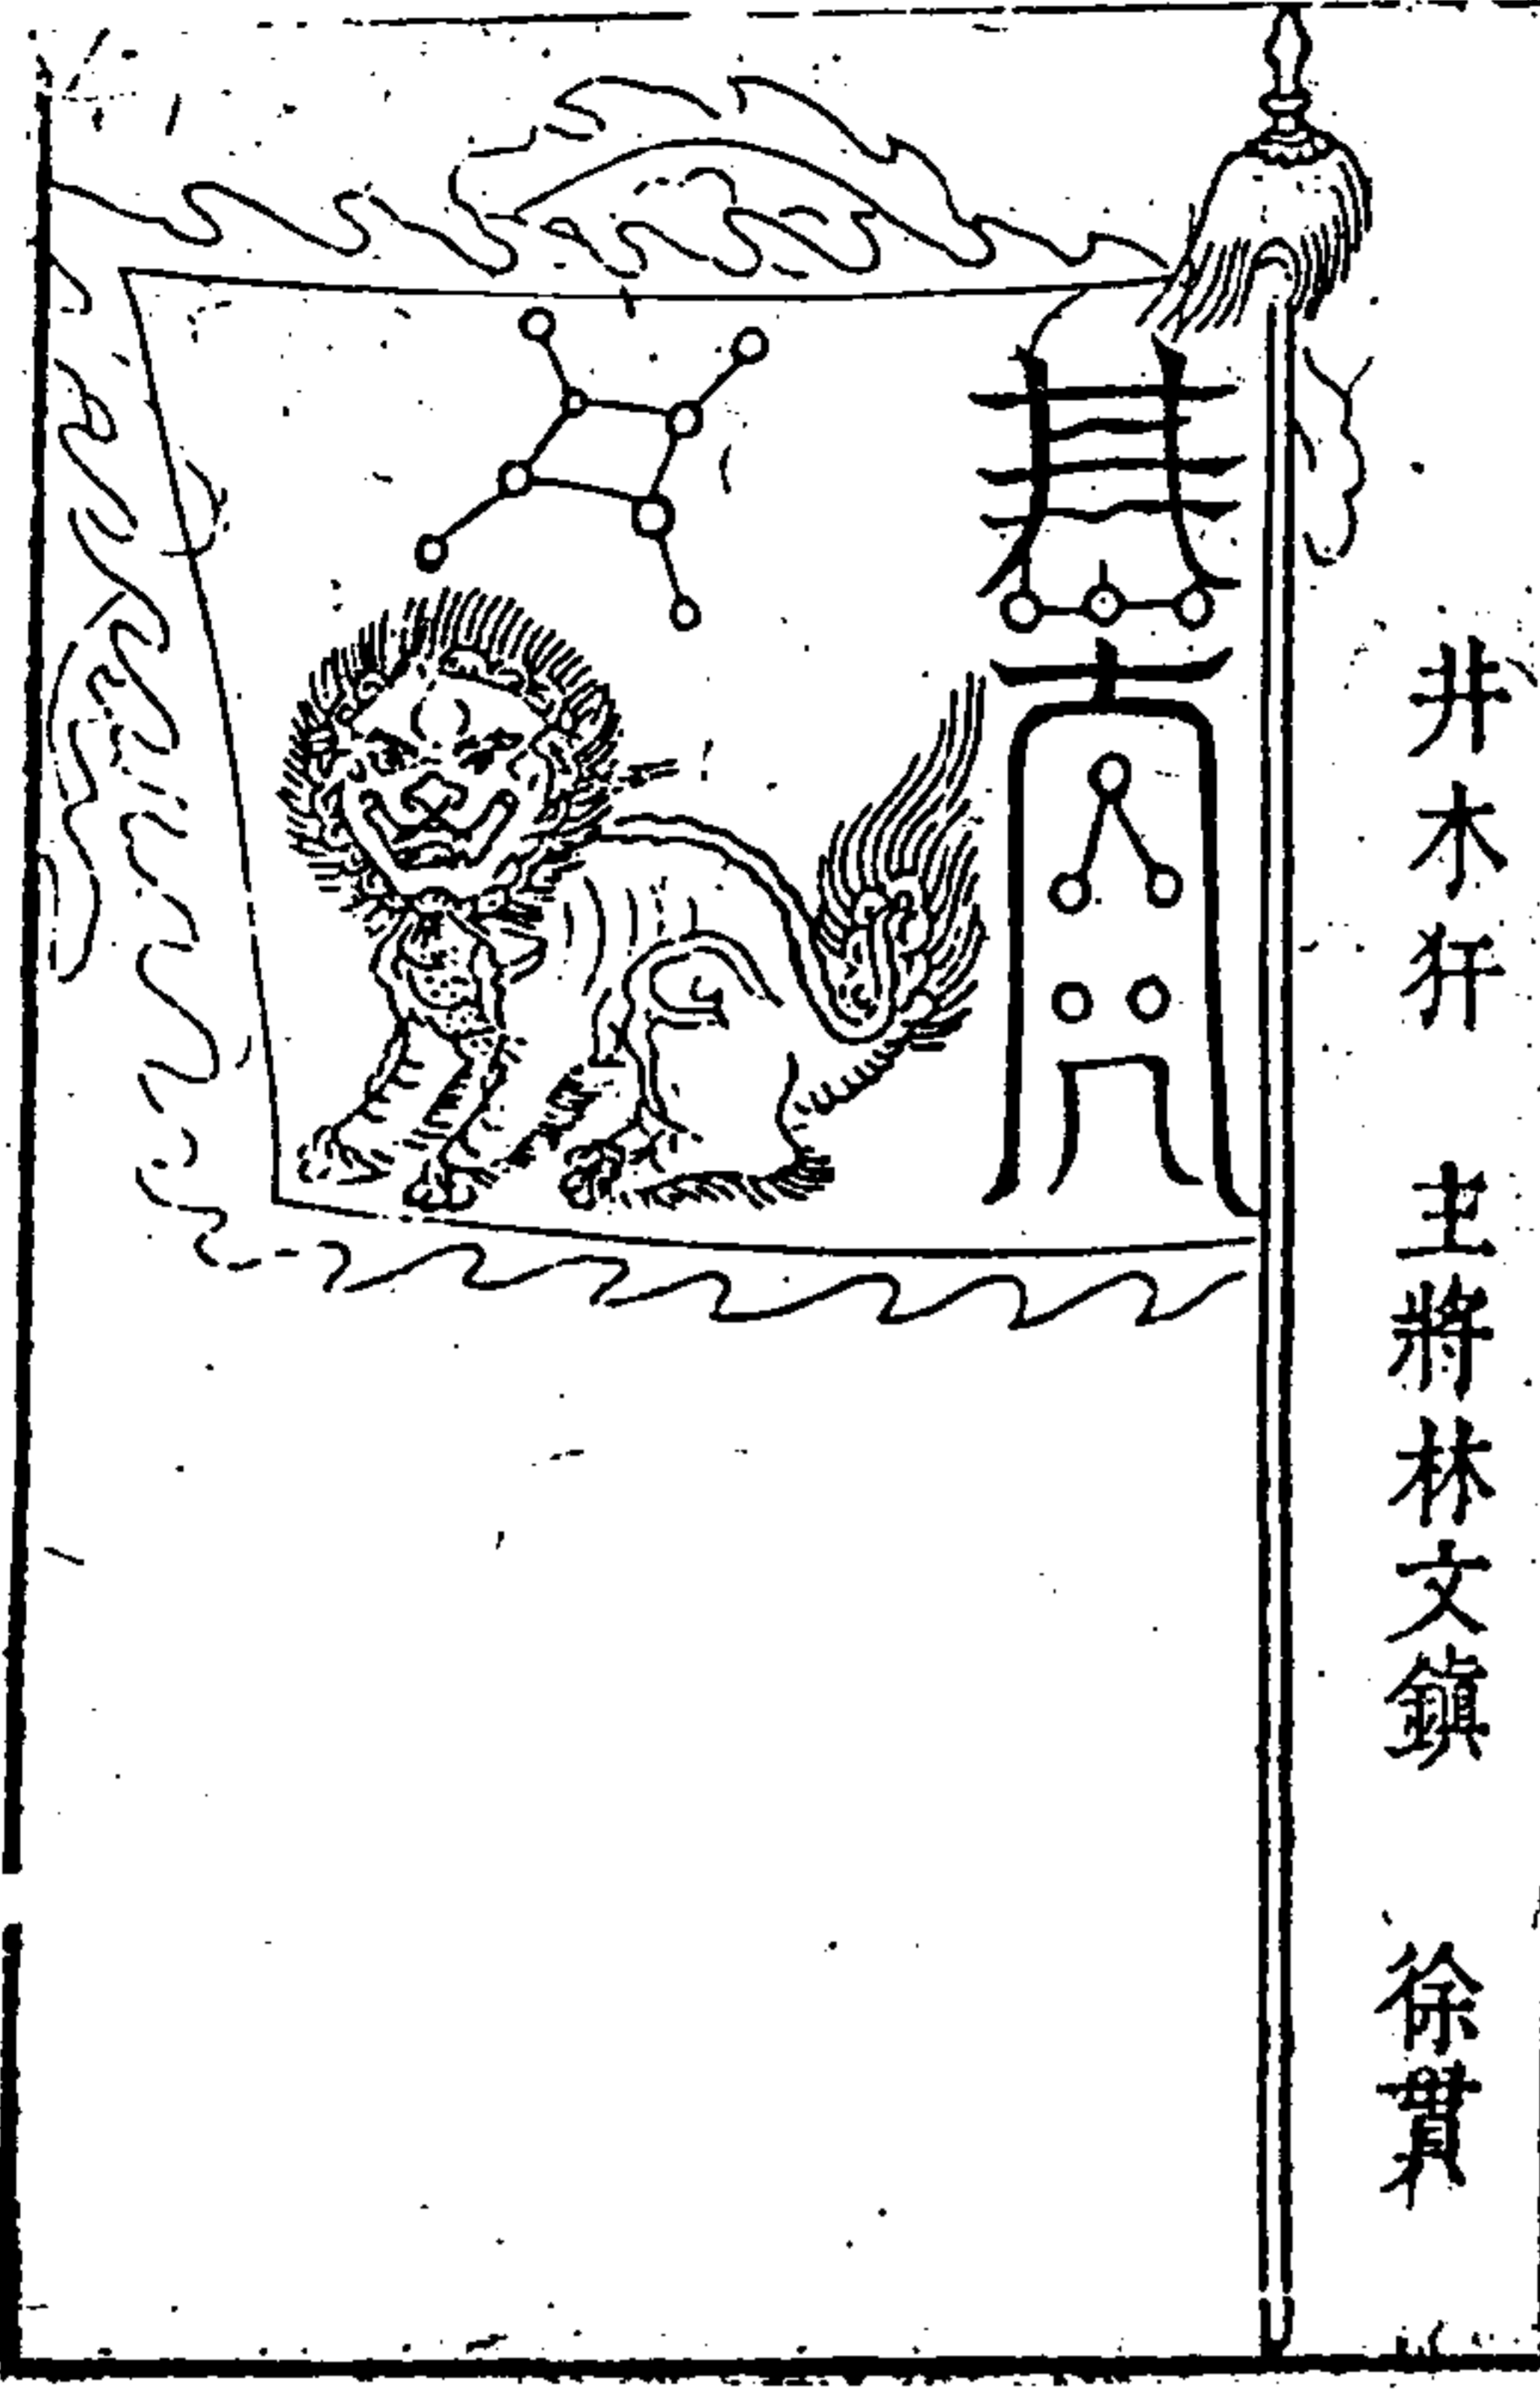 井木犴 主將林文鎮 徐貫